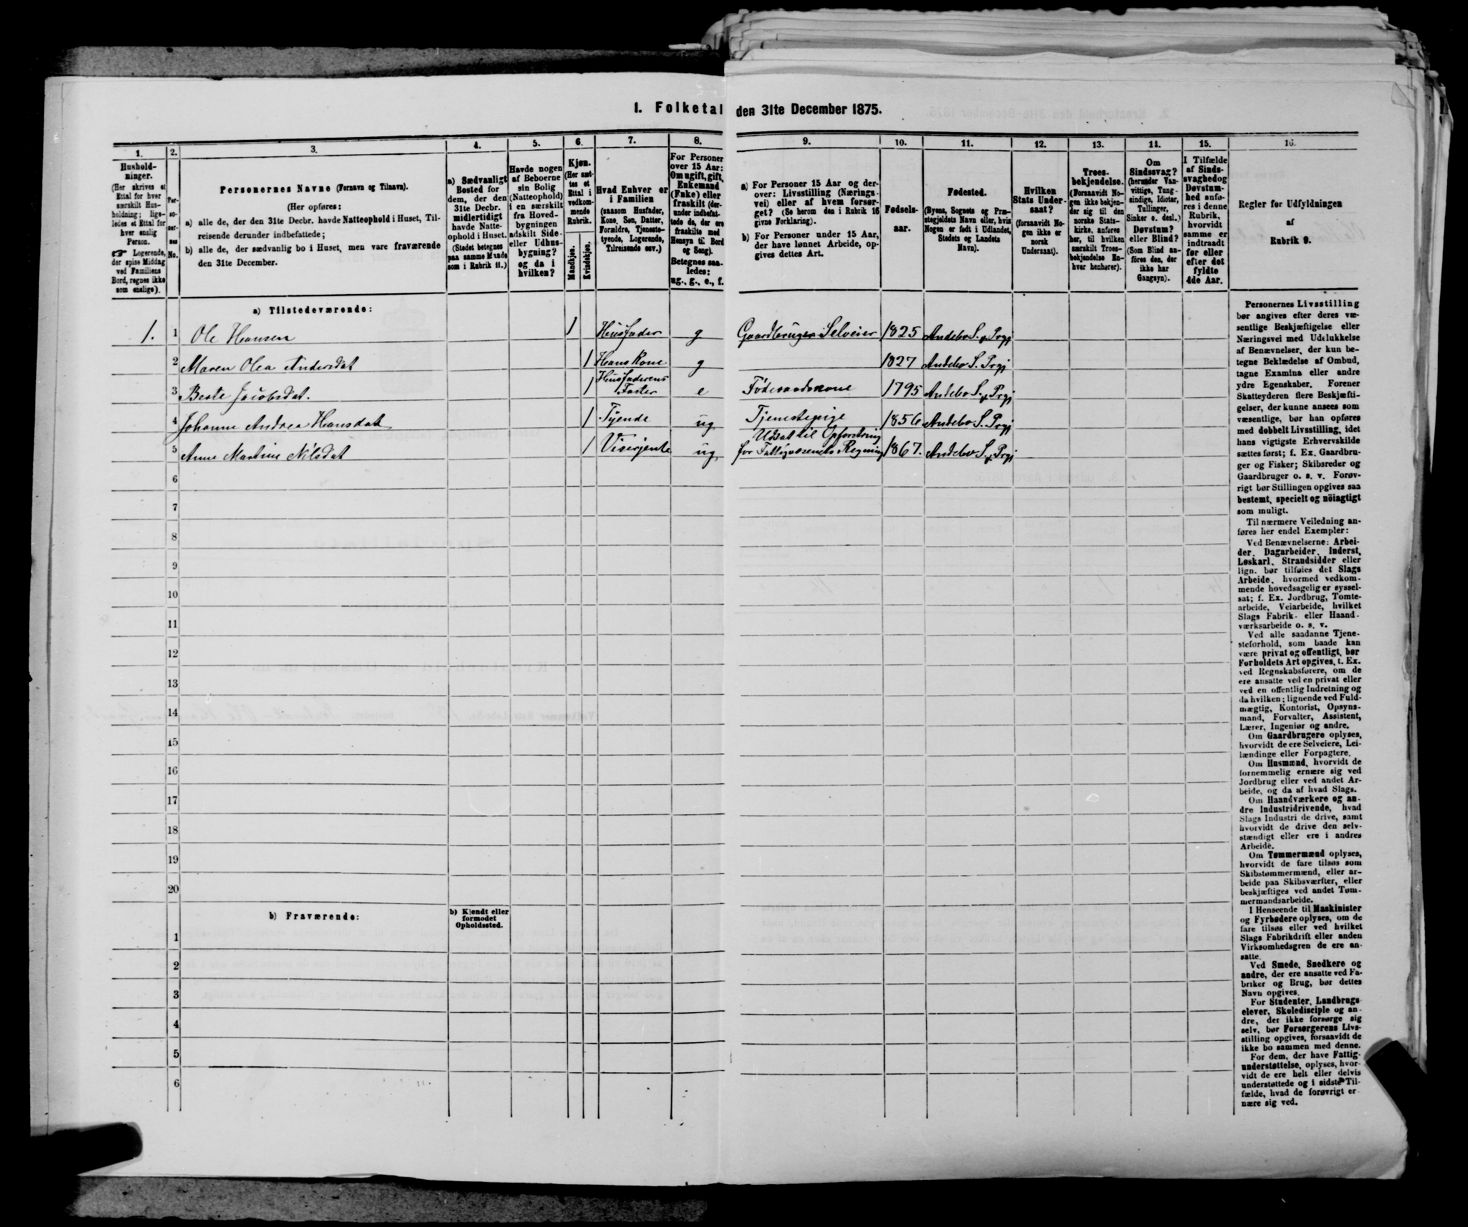 I. Folketal den 31te December 1875.
1.
Hushold-
ninger.
(Her skrives et
Ettal for hver
særskilt Hus-
holdning; lige-
ledes et Ettal for
hver enslig
Person.
☞ Logerende,
der spise Middag
ved Familiens
Bord, regnes ikke
som enslige).
2.
Per-
so-
ner-
nes
No.
3.
Personernes Navne (Fornavn og Tilnavn).
(Her opføres:
a) alle de, der den 31te Decbr. havde Natteophold i Huset, Til-
reisende derunder indbefattede;
b) alle de, der sædvanlig bo i Huset, men vare fraværende
den 31te December.
4.
a) Sædvanligt
Bosted for
dem, der den
31te Decbr.
midlertidigt
havde Natte-
ophold i Huset.
(Stedet betegnes
paa samme Maade
som i Rubrik 11.)
5.
Havde nogen
af Beboerne
sin Bolig
(Natteophold)
i en særskilt
fra Hoved-
bygningen
adskilt Side-
eller Udhus-
bygning?
og da i
hvilken?
6.
Kjøn.
(Her sæt-
tes et
Ettal i
vedkom-
mende
Rubrik.
Mandkjøn.
Kvindekjøn.
7.
Hvad Enhver er
i Familien
(saasom Husfader,
Kone, Søn, Datter,
Forældre, Tjeneste-
tyende, Logerende,
Tilreisende osv.)
8.
For Personer
over 15 Aar:
Om ugift, gift,
Enkemand
(Enke) eller
fraskilt (der-
under indbefat-
tede de, der ere
fraskilte med
Hensyn til Bord
og Seng).
Betegnes saa-
ledes:
ug., g., e., f.
9.
a) For Personer 15 Aar og der-
over: Livsstilling (Nærings-
vei) eller af hvem forsør-
get? (Se herom den i Rubrik 16
givne Forklaring).
b) For Personer under 15 Aar,
der have lønnet Arbeide, op-
gives dettes Art.
10.
Fødsels-
aar.
11.
Fødested.
(Byens, Sognets og Præ-
stegjeldets Navn eller, hvis
Nogen er født i Udlandet,
Stedets og Landets
Navn).
12.
Hvilken
Stats Under-
saat?
(forsaavidt No-
gen ikke er
norsk
Undersaat).
13.
Troes-
bekjendelse.
(Forsaavidt No-
gen ikke bekjen-
der sig til den
norske Stats-
kirke, anføres
her, til hvilken
særskilt Troes-
bekjendelse En-
hver henhører).
14.
Om
Sindssvag?
(herunder Van-
vittige, Tung-
sindige, Idioter,
Tullinger,
Sinker o. desl.)
Døvstum?
eller Blind?
(Som Blind an-
føres den, der
ikke har
Gangsyn).
15.
I Tilfælde
af Sinds-
svaghed og
Døvstum-
hed anfø-
res i denne
Rubrik,
hvorvidt
samme er
indtraadt
før eller
efter det
fyldte
4de Aar.
16.
Regler for Udfyldningen
af
Rubrik 9.
a) Tilstedeværende:
1. 1 Ole Hansen 1 Husfader g Gaardbruger Selveier 1825 Andebo S. & Prgj
2 Maren Olea Andersdat 1 Hans Kone g 1827 Andebo S. Prgj
3 Berte Jacobsdat. 1 Husfaderens Faster e Føderaadskone 1795 Andebo S. & Prgj
4 Johanne Andrea Hansdat 1 Tyende ug Tjenestepige 1856 Andebo S. Prgj
5 Anne Martine Nilsdat 1 Viserjente ug Udsat til Opfostring for Fattigvæsenets Regning 1867. Andebo S. & Prgj
6
7
8
9
10
11
12
13
14
15
16
17
18
19
20
b) Fraværende:
b) Kjendt eller
formodet
Opholdssted.
1
2
3
4
5
6
Personernes Livsstilling
bør angives efter deres væ-
sentlige Beskjæftigelse eller
Næringsvei med Udelukkelse
af Benævnelser, der kun be-
tegne Beklædelse af Ombud,
tagne Examina eller andre
ydre Egenskaber. Forener
Skatteyderen flere Beskjæfti-
gelser, der kunne ansees som
væsentlige, bør han opføres
med dobbelt Livsstilling, idet
hans vigtigste Erhvervskilde
sættes først; f. Ex. Gaardbru-
ger og Fisker; Skibsreder og
Gaardbruger o. s. v. Forøv-
rigt bør Stillingen opgives saa
bestemt, specielt og nöiagtigt
som muligt.
Til nærmere Veiledning an-
føres her endel Exempler:
Ved Benævnelserne: Arbei-
der, Dagarbeider, Inderst,
Løskarl, Strandsidder eller
lign. bør tilføies det Slags
Arbeide, hvormed vedkom-
mende hovedsagelig er syssel-
sat; f. Ex. Jordbrug, Tomte-
arbeide, Veiarbeide, hvilket
Slags Fabrik- eller Haand-
værksarbeide o. s. v.
Ved alle saadanne Tjene-
steforhold, som baade kan
være privat og offentligt, bør
Forholdets Art opgives, t. Ex.
ved Regnskabsførere, om de
ere ansatte ved en privat eller
ved en offentlig Indretning og
da hvilken; lignende ved Fuld-
mægtig, Kontorist, Opsyns-
mand, Forvalter, Assistent,
Lærer, Ingeniør og andre.
Om Gaardbrugere oplyses,
hvorvidt de ere Selveiere, Lei-
lændinge eller Forpagtere.
Om Husmænd, hvorvidt de
fornemmelig ernære sig ved
Jordbrug eller ved andet Ar-
beide, og da af hvad Slags.
Om Haandværkere og an-
dre Industridrivende, hvad
Slags Industri de drive, samt
hvorvidt de drive den selv-
stændigt eller ere i andres
Arbeide.
Om Tømmermænd oplyses,
hvorvidt de fare tilsøs som
Skibstømmermænd, eller ar-
beide paa Skibsværfter, eller
beskjæftiges ved andet Tøm-
mermandsarbeide.
I Henseende til Maskinister
og Fyrbødere oplyses, om de
fare tilsøs eller ved hvilket
Slags Fabrikdrift eller anden
Virksomhedsgren de ere an-
satte.
Ved Smede, Snedkere og
andre, der ere ansatte ved Fa-
briker og Brug, bør dettes
Navn opgives.
For Studenter, Landbrugs-
elever, Skoledisciple og an-
dre, der ikke forsørge sig
selv, bør Forsørgerens Livs-
stilling opgives, forsaavidt de
ikke bo sammen med denne.
For dem, der have Fattig-
understøttelse, oplyses, hvor-
vidt de ere helt eller delvis
understøttede og i sidste Til-
fælde, hvad de forøvrigt er-
nære sig ved.